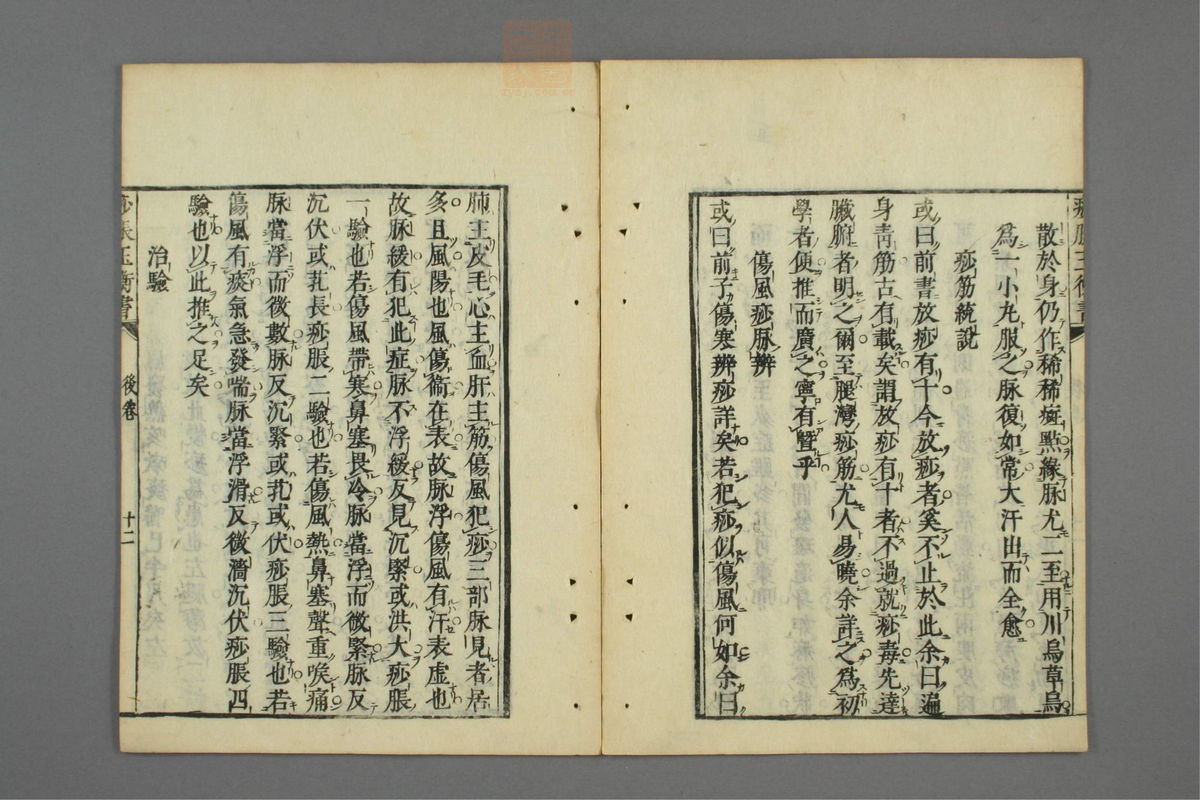 散於身仍作稀稀痧點緣脉尤一至用川烏草烏
爲一小丸服之脉復如常大汗出而全愈
痧筋統說
或曰前書放痧有十今放痧者奚不止於此余曰遍
身青筋古有載矣謂放痧有十者不過就痧毒先達
臟腑者明之爾至腿灣痧筋尤人易曉余詳之爲初
學者便推而廣之寧有暨乎
傷風痧脉辨
或曰前子傷寒辨痧詳矣若犯痧似傷風何如余曰
肺主皮毛心主血肝主筋傷風犯痧三部脉見者居
多且風陽也風傷衞在表故脉浮傷風有汗表虛也
故脉緩有犯此症脉不浮緩反見沉緊或洪大痧脹
一驗也若傷風帶寒鼻塞畏冷脉當浮而微緊脉反
沉伏或芤長痧脹二驗也若傷風熱鼻塞聲重喉痛
脉當浮而微數脉反沉緊或芤或伏痧脹三驗也若
傷風有痰氣急發喘脉當浮滑反微濇沉伏痧脹四
驗也以此推之足矣
治驗
痧脹玉衡書 後卷 十二